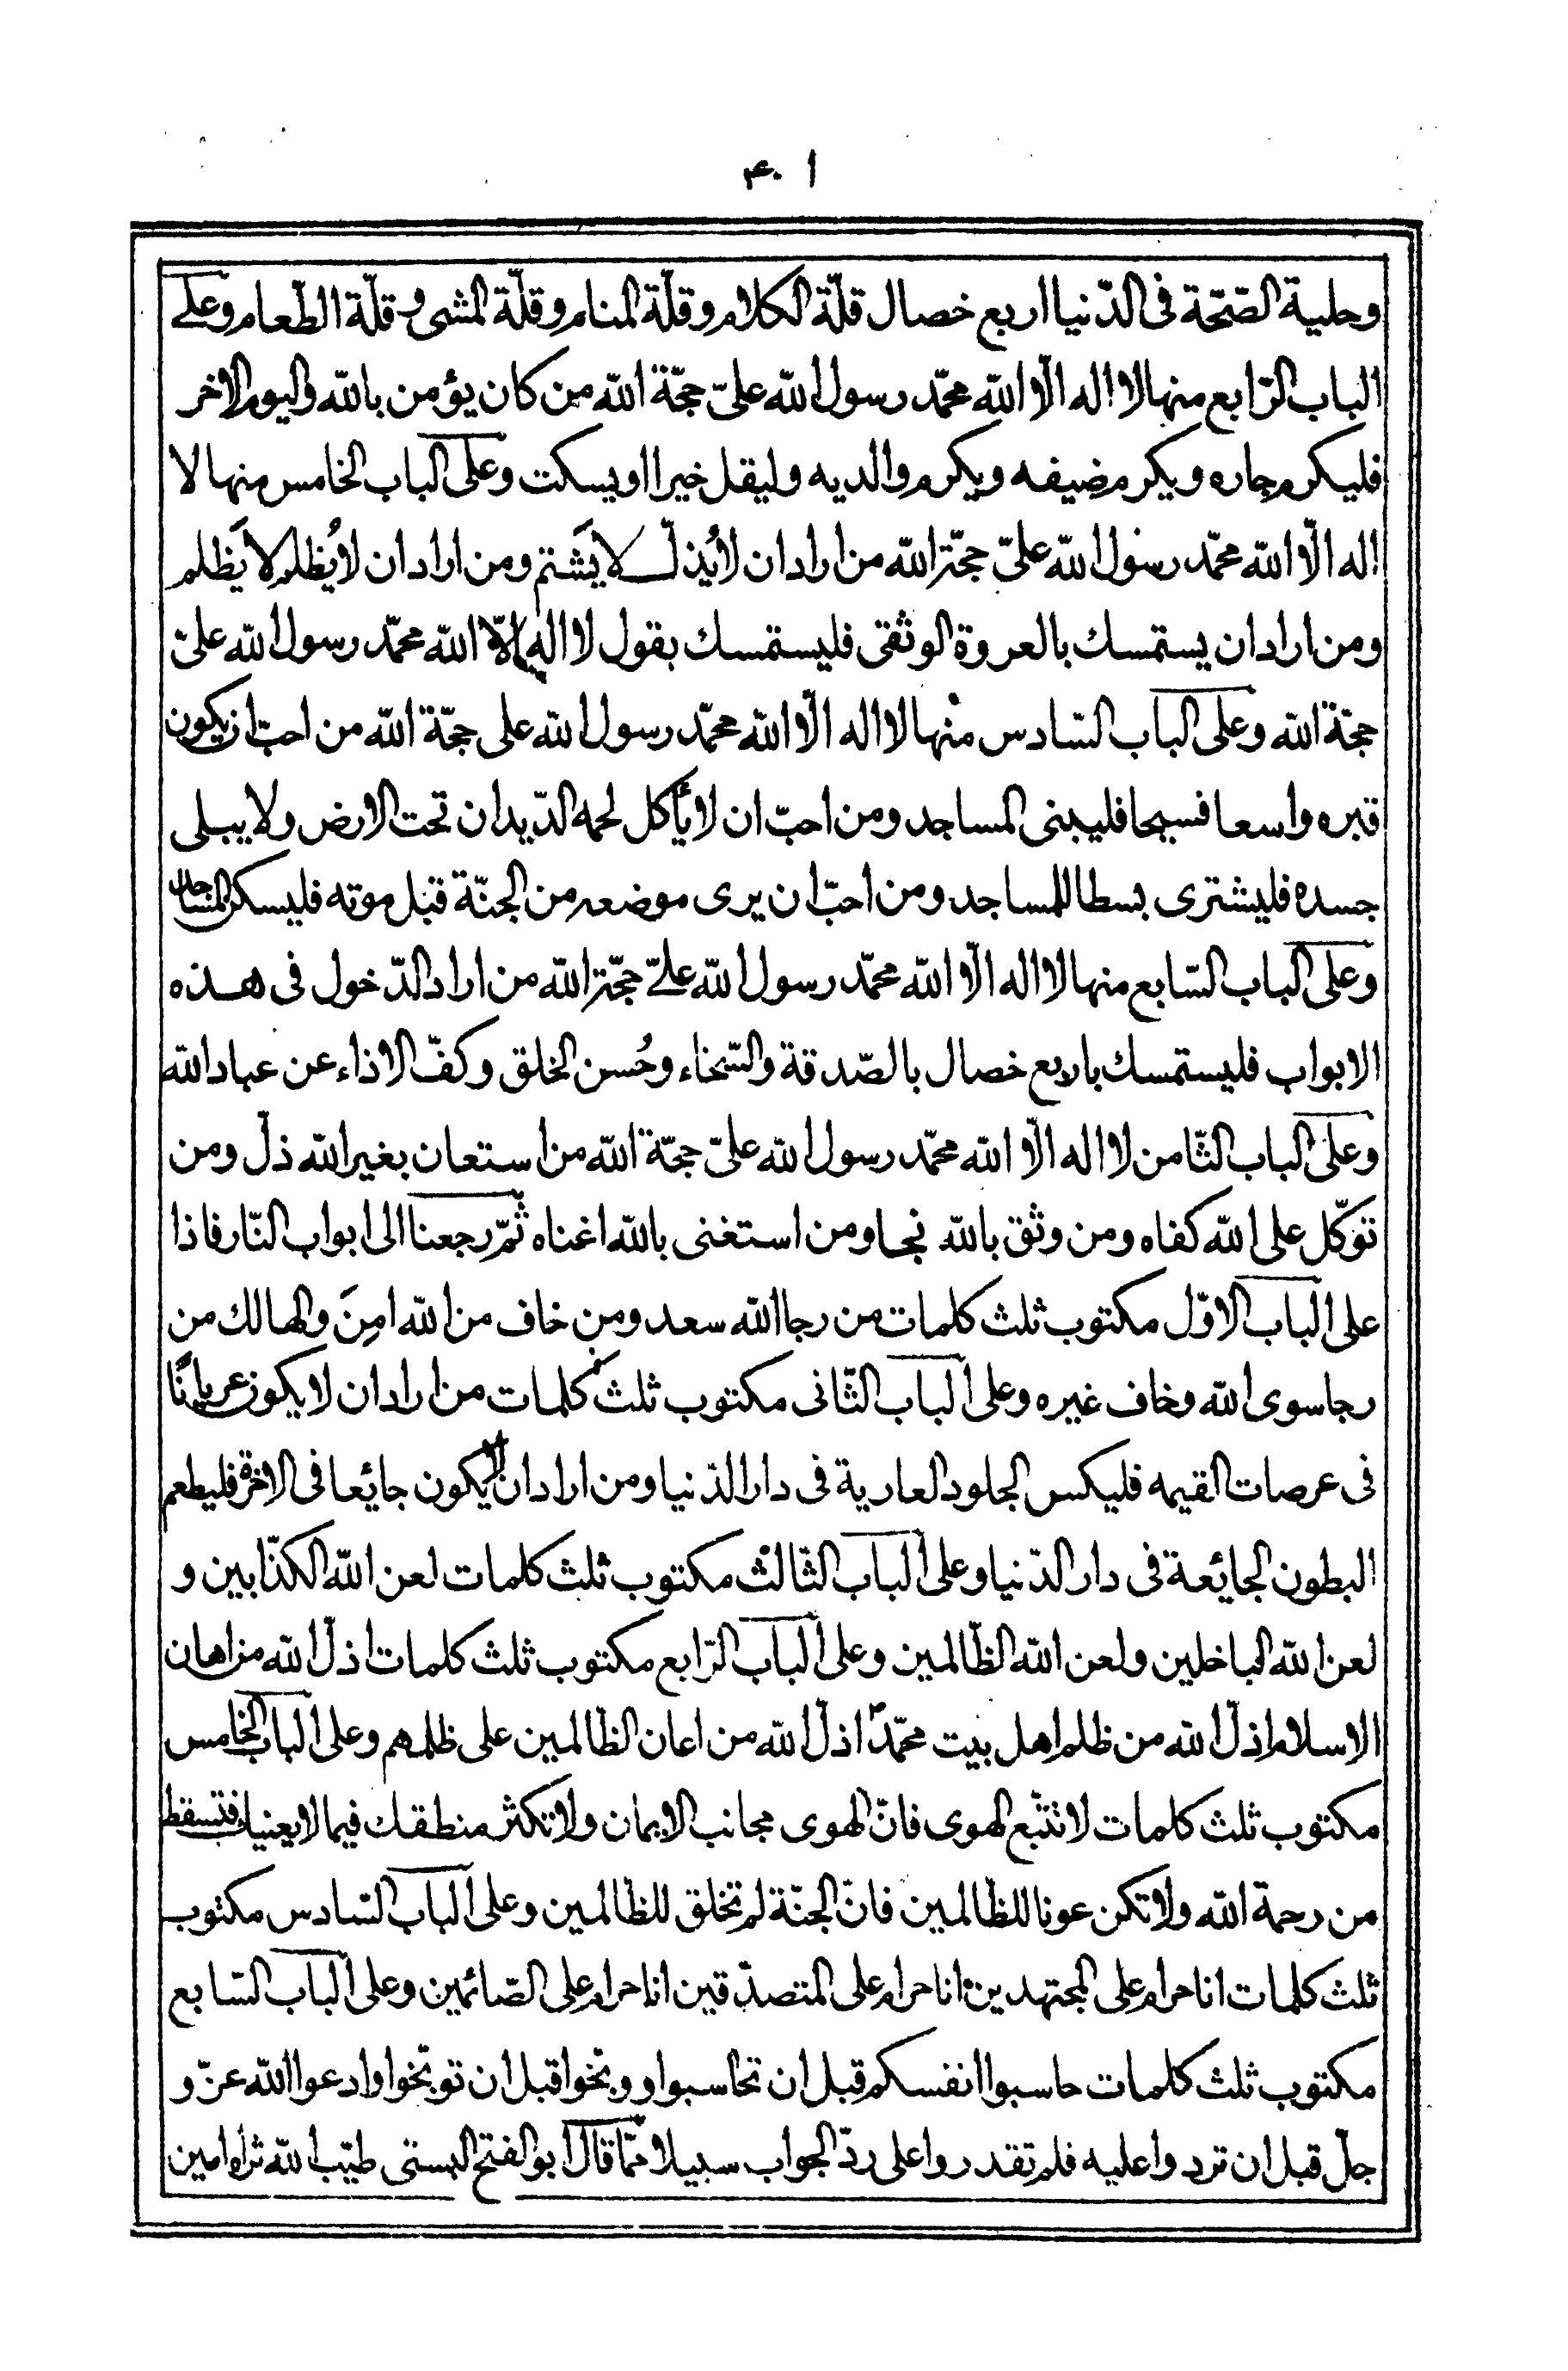 ٤٠١
وحلية الصّحّة فى الدّنيا اربع خصال قلّة الكلام وقلّة المنام وقلّة المشى و قلّة الطّعام وعلى
الباب الرّابع منها لا اله الّا الله محمّد رسول الله علىّ حجّة الله من كان يؤمن بالله واليوم الاخر
فليكرم جاره ويكرم ضيفه ويكرم والديه وليقل خيرا او يسكت وعلى الباب الخامس منها لا
اله الّا الله محمّد رسول الله علىّ حجّة الله من اراد ان لا يُذلّ لا يَشتم ومن اراد ان لا يُظلم لا يَظلم
ومن اراد ان يستمسك بالعروة الوثقى فليستمسك بقول لا اله الّا الله محمّد رسول الله علىّ
حجّة الله وعلى الباب السّادس منها لا اله الّا الله محمّد رسول الله على حجّة الله من احبّ ان يكون
قبره واسعا فسيحا فليبنى المساجد ومن احبّ ان لا يأكل لحمه الدّيدان تحت الارض ولا يبلى
جسده فليشترى بسطا للمساجد ومن احبّ ان يرى موضعه من الجنّة قبل موته فليسكن المساجد
وعلى الباب السّابع منها لا اله الّا الله محمّد رسول الله علىّ حجّة الله من اراد الدّخول فى هذه
الابواب فليستمسك باربع خصال بالصّدقة والسّخاء وحُسن الخلق وكفّ الاذاء عن عباد الله
وعلى الباب الثّامن لا اله الّا الله محمّد رسول الله علىّ حجّة الله من استعان بغير الله ذلّ ومن
توكّل على الله كفاه ومن وثق بالله نجا ومن استغنى بالله اغناه ثمّ رجعنا الى ابواب النّار فاذا
على الباب الاوّل مكتوب ثلث كلمات من رجا الله سعد ومن خاف من الله امِنَ والهالك من
رجا سوى الله وخاف غيره وعلى الباب الثّانى مكتوب ثلث كلمات من اراد ان لا يكون عريانًا
فى عرصات القيمه فليكس الجلود العارية فى دار الدّنيا ومن اراد ان لا يكون جائعا فى الاخرة فليطعم
البطون الجائعة فى دار الدّنيا وعلى الباب الثّالث مكتوب ثلث كلمات لعن الله الكذّابين و
لعن الله الباخلين ولعن الله الظّالمين وعلى الباب الرّابع مكتوب ثلث كلمات اذلّ الله من اهان
الاسلام اذلّ الله من ظلم اهل بيت محمّد اذلّ الله من اعان الظّالمين على ظلمهم وعلى الباب الخامس
مكتوب ثلث كلمات لا تتّبع الهوى فانّ الهوى مجانب الايمان ولا تكثر منطقك فيما لا يعنيك فتسقط
من رحمة الله ولا تكن عونا للظّالمين فانّ الجنّة لم تخلق للظّالمين وعلى الباب السّادس مكتوب
ثلث كلمات انا حرام على المجتهدين انا حرام على المتصدّقين انا حرام على الصّائمين وعلى الباب السّابع
مكتوب ثلث كلمات حاسبوا انفسكم قبل ان تحاسبوا ووبّخوا قبل ان توبّخوا وادعوا الله عزّ و
جلّ قبل ان تردوا عليه فلم تقدروا على ردّ الجواب سبيلا ممّا قال ابو الفتح البستى طيّب الله ثراه امين